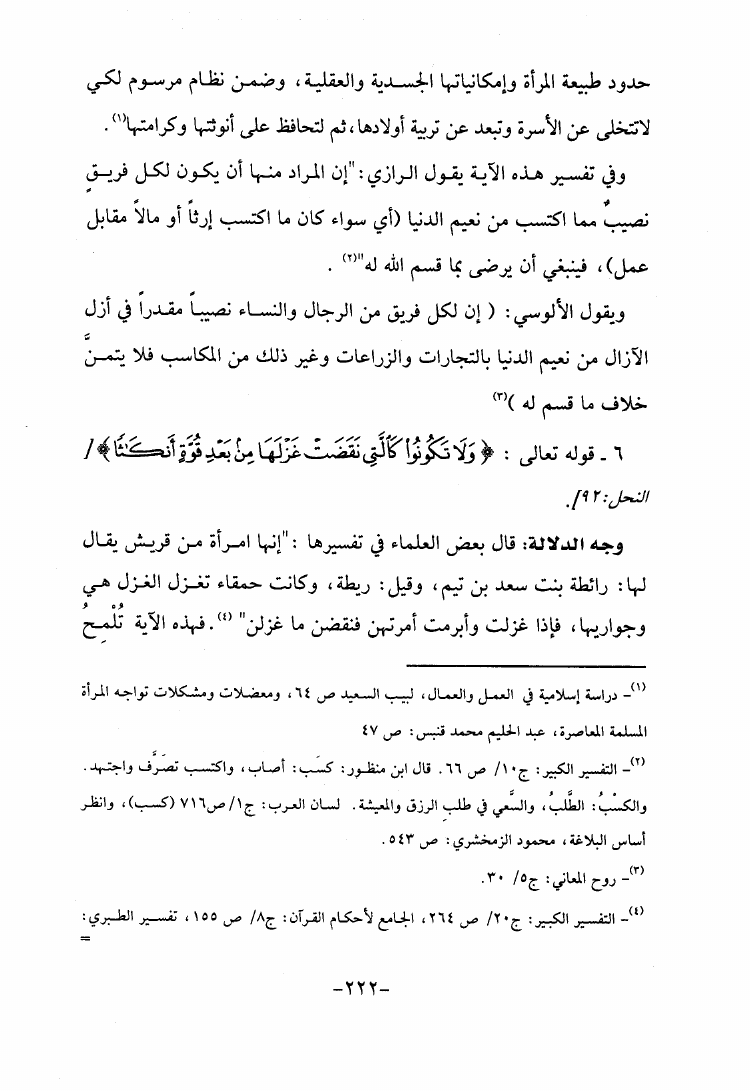 حدود طبيعة المرأة وإمكانياتها الجسدية والعقلية، وضمن نظام مرسوم لكي
لاتتخلى عن الأسرة وتبعد عن تربية أولادها، ثم لتحافظ على أنوثتها وكرامتها(١).
وفي تفسير هذه الآية يقول الرازي: "إن المراد منها أن يكون لكل فريقٍ
نصيبٌ مما اكتسب من نعيم الدنيا (أي سواء كان ما اكتسب إرثاً أو مالاً مقابل
عمل)، فينبغي أن يرضى بما قسم الله له"(٢) .
ويقول الألوسي: ( إن لكل فريق من الرجال والنساء نصيباً مقدراً في أزل
الآزال من نعيم الدنيا بالتجارات والزراعات وغير ذلك من المكاسب فلا يتمنَّ
خلاف ما قسم له )(٣)
٦ ـ قوله تعالى : ﴿ وَلَا تَكُونُوا۟ كَٱلَّتِى نَقَضَتْ غَزْلَهَا مِنۢ بَعْدِ قُوَّةٍ أَنكَـٰثًا ﴾ /
النحل:٩٢/.
وجه الدلالة: قال بعض العلماء في تفسيرها :"إنها امرأة من قريش يقال
لها: رائطة بنت سعد بن تيم، وقيل: ريطة، وكانت حمقاء تغزل الغزل هي
وجواريها، فإذا غزلت وأبرمت أمرتهن فنقضن ما غزلن" (٤). فهذه الآية تُلْمِحُ
(١)- دراسة إسلامية في العمل والعمال، لبيب السعيد ص ٦٤، ومعضلات ومشكلات تواجه المرأة
المسلمة المعاصرة، عبد الحليم محمد قنبس: ص ٤٧
(٢)- التفسير الكبير: ج١٠/ ص ٦٦. قال ابن منظور: كسَب: أصاب، واكتسب تصَرَّف واجتهد.
والكسْبُ: الطَّلَبُ، والسَّعي في طلبِ الرزق والمعيشة. لسان العرب: ج١/ص٧١٦ (كسب)، وانظر
أساس البلاغة، محمود الزمخشري: ص ٥٤٣.
(٣)- روح المعاني: ج٥/ ٣٠.
(٤)- التفسير الكبير: ج٢٠/ ص ٢٦٤، الجامع لأحكام القرآن: ج٨/ ص ١٥٥، تفسير الطبري:
=
-٢٢٢-